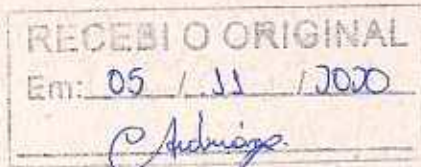 RECEBI O ORIGINAL
Em: 05 / 11 / 2020